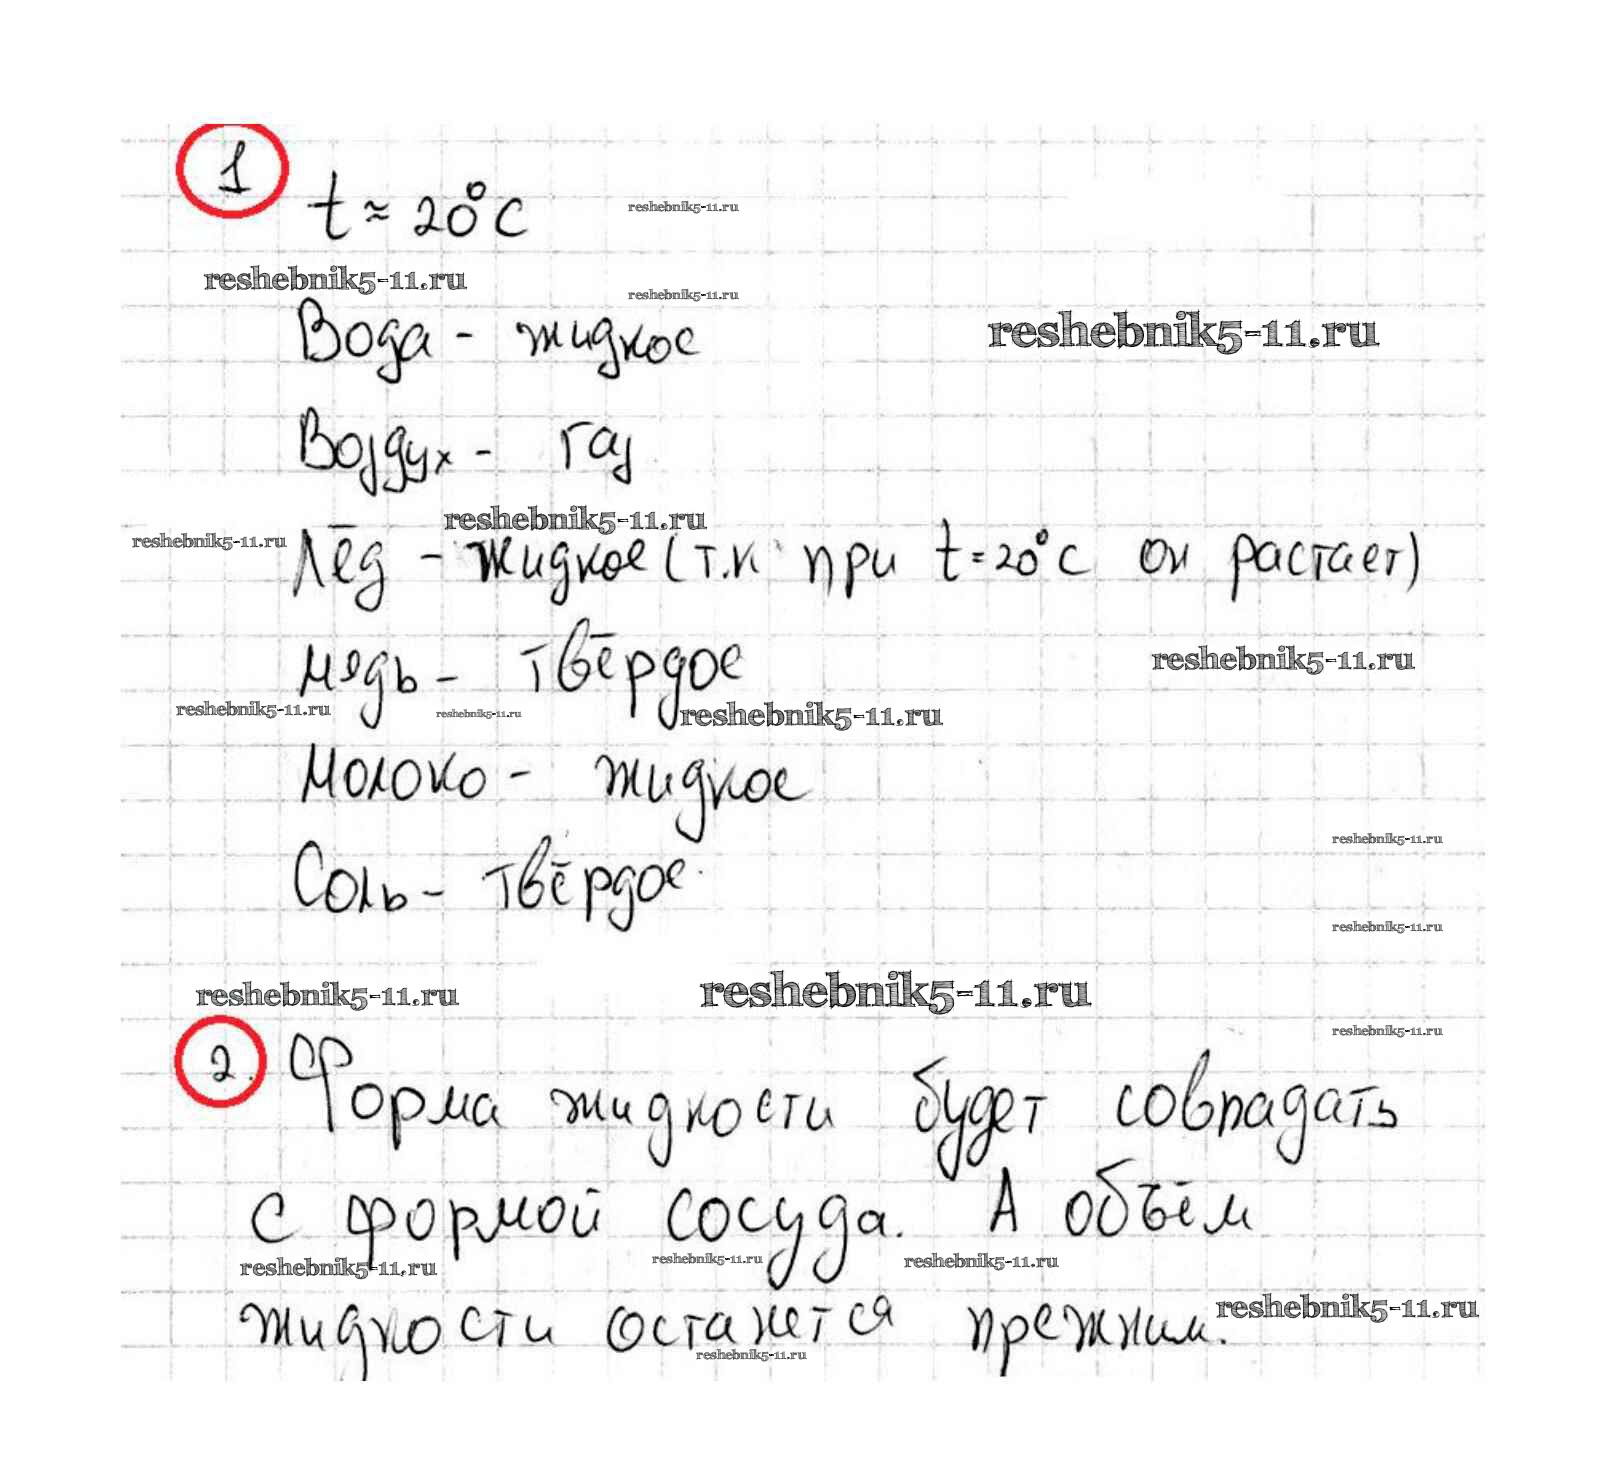 1
t ≈ 20°C
reshebnik5-11.ru
reshebnik5-11.ru
reshebnik5-11.ru
Вода - жидкое
reshebnik5-11.ru
Воздух - газ
reshebnik5-11.ru
reshebnik5-11.ru
Лёд - жидкое (т.к при t=20°C он растает)
reshebnik5-11.ru
мядь - твёрдое
reshebnik5-11.ru
reshebnik5-11.ru
reshebnik5-11.ru
Молоко - жидкое
reshebnik5-11.ru
Соль - твёрдое
reshebnik5-11.ru
reshebnik5-11.ru
reshebnik5-11.ru
reshebnik5-11.ru
2. Форма жидкости будет совпадать
с формой сосуда. А объём
reshebnik5-11.ru
reshebnik5-11.ru
reshebnik5-11.ru
reshebnik5-11.ru
жидкости останется прежним.
reshebnik5-11.ru